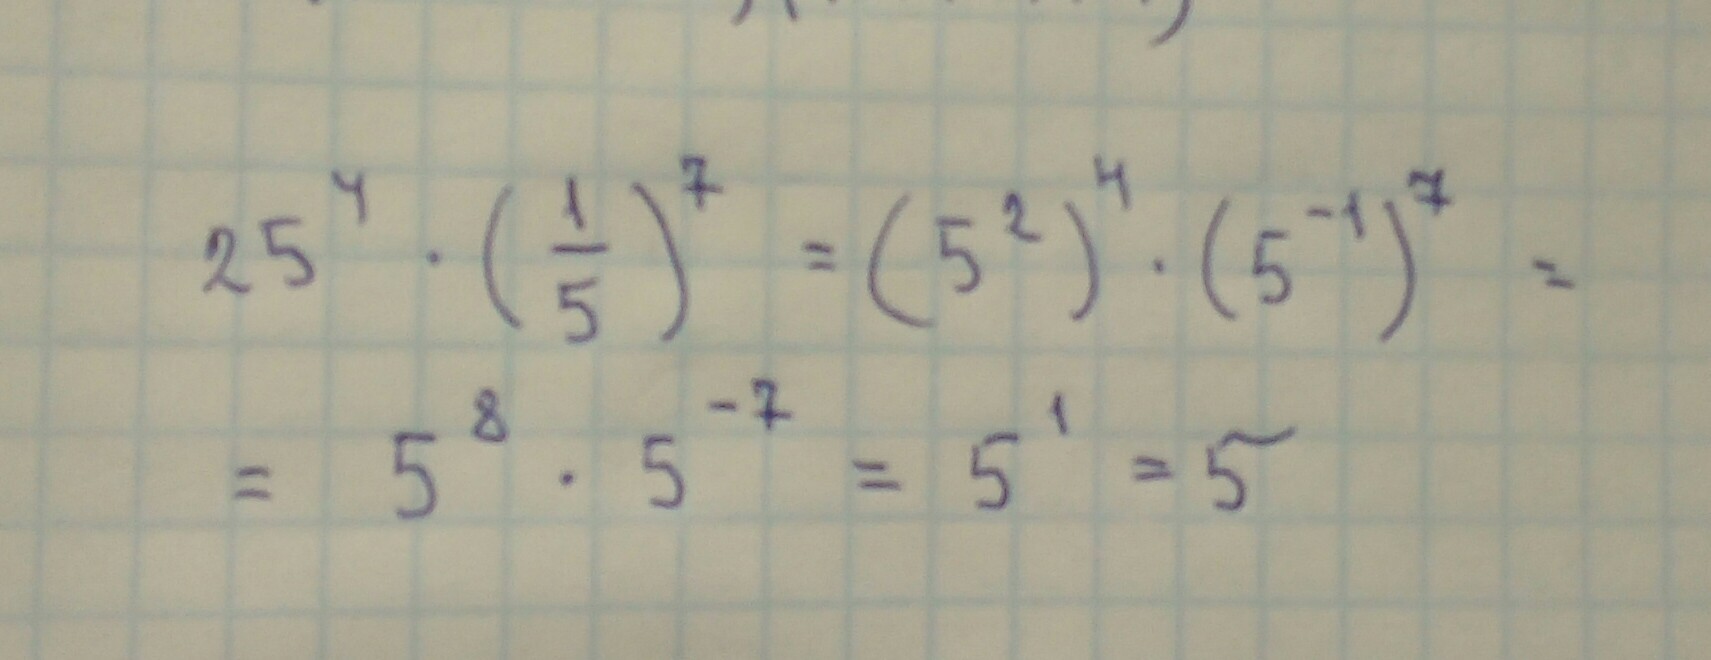 25⁴ · (1/5)⁷ = (5²)⁴ · (5⁻¹)⁷ =
= 5⁸ · 5⁻⁷ = 5¹ = 5